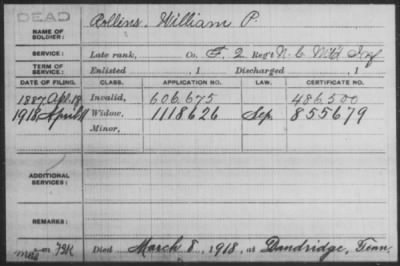 DEAD
NAME OF SOLDIER: Rollins, William P.
SERVICE: Late rank, Co. F, 2 Reg't N. C. Mt'd Inf
TERM OF SERVICE: Enlisted , 1 Discharged , 1
DATE OF FILING. CLASS. APPLICATION NO. LAW. CERTIFICATE NO.
1887 Apl. 18 Invalid, 606.675 486.500
1918 April Widow, 1118626 Sep. 855679
Minor,
ADDITIONAL SERVICES:
REMARKS:
Died March 8, 1918, at Dandridge, Tenn.